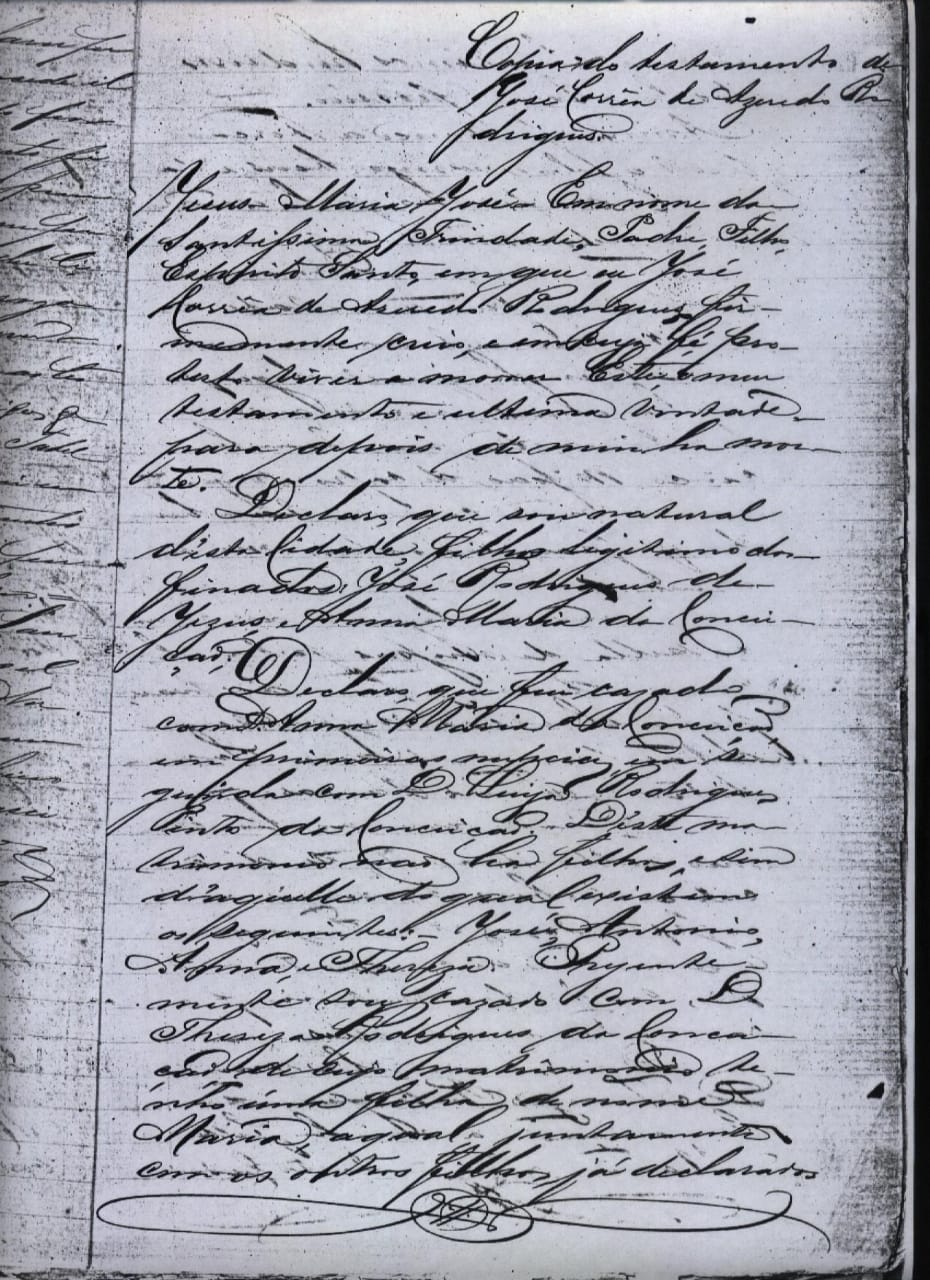 Copia do testamento de
José Corrêa de Azeredo Ro
drigues.
Jesus Maria José Em nome da
Santissima Trindade, Padre, Filho,
Espirito Santo, em que eu José
Corrêa de Azeredo Rodrigues, fir-
memente creio, e em cuja fé pro-
testo viver e morrer Este é o meu
testamento e ultima vontade
para depois de minha mor-
te.
Declaro, que sou natural
desta Cidade, filho legitimo dos
finados José Rodrigues de
Jezus, e Anna Maria da Concei-
ção.
Declaro, que fui cazado
com D. Anna Maria da Conceição,
em primeiras nupcias, em se
gunda com D. Luiza Rodrigues
Pinto da Conceição. Déste ma-
trimonio não ha filhos, e sim
d'aquelle do qual existem
os seguintes: José, Antonio,
Anna e Thereza. Prezente-
mente sou cazado com D.
Thereza Rodrigues da Concei-
ção de cujo matrimonio te-
nho uma filha de nome
Maria a qual, juntamente
com os outros filhos já declarados